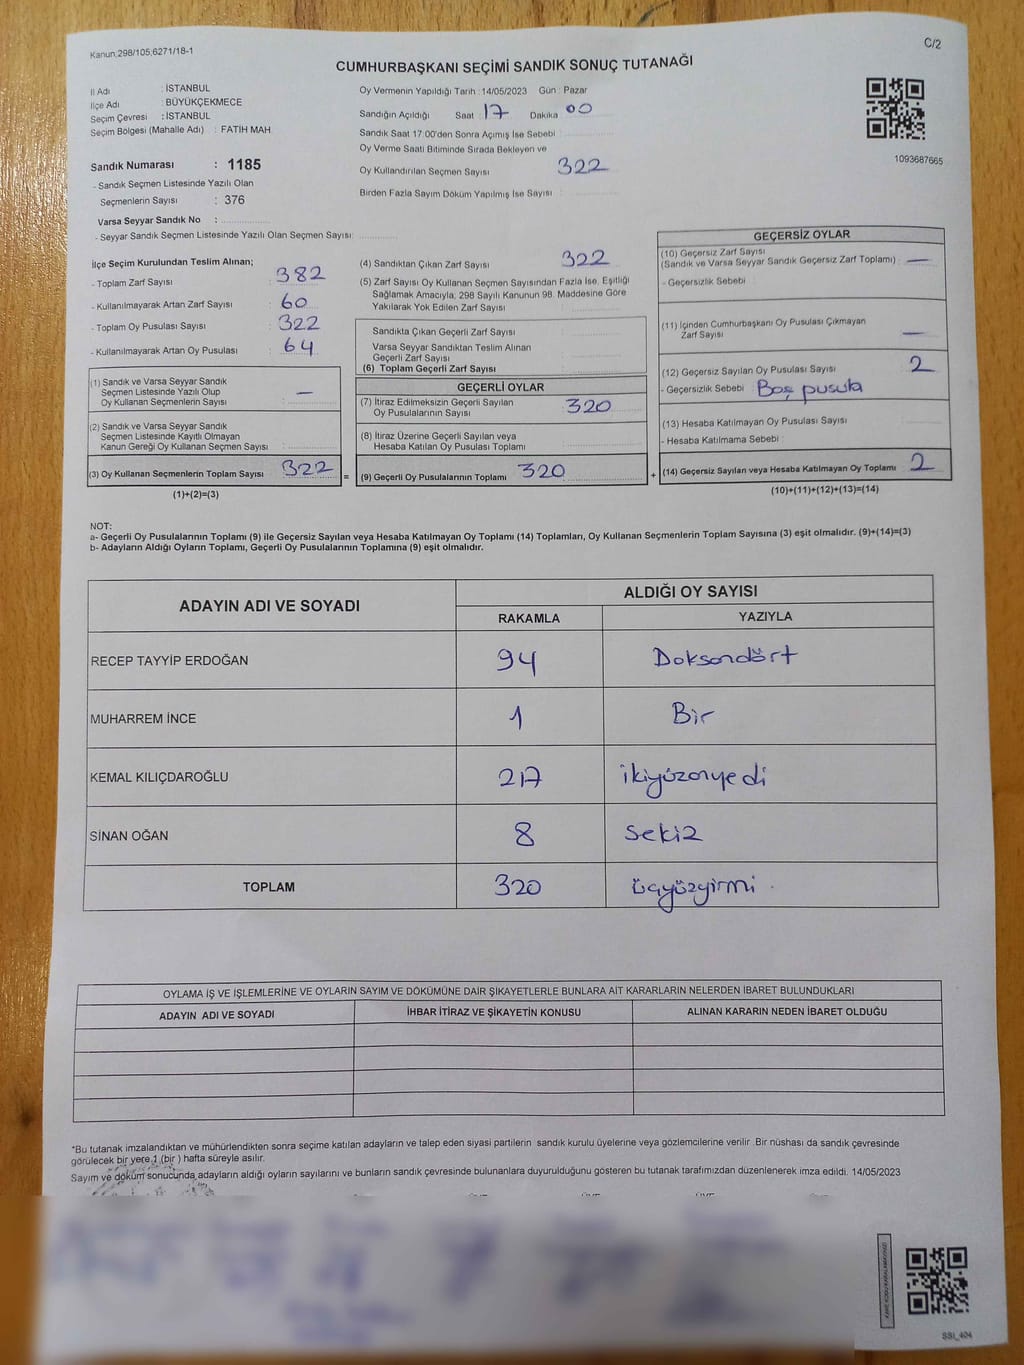 Kanun;298/105;6271/18-1
C/2
CUMHURBAŞKANI SEÇİMİ SANDIK SONUÇ TUTANAĞI
İl Adı : İSTANBUL
İlçe Adı : BÜYÜKÇEKMECE
Seçim Çevresi : İSTANBUL
Seçim Bölgesi (Mahalle Adı) : FATİH MAH.
Sandık Numarası : 1185
- Sandık Seçmen Listesinde Yazılı Olan
Seçmenlerin Sayısı : 376
Varsa Seyyar Sandık No :
- Seyyar Sandık Seçmen Listesinde Yazılı Olan Seçmen Sayısı:
Oy Vermenin Yapıldığı Tarih : 14/05/2023 Gün : Pazar
Sandığın Açıldığı Saat : 17 Dakika : 00
Sandık Saat 17:00'den Sonra Açımış İse Sebebi :
Oy Verme Saati Bitiminde Sırada Bekleyen ve
Oy Kullandırılan Seçmen Sayısı : 322
Birden Fazla Sayım Döküm Yapılmış İse Sayısı :
1093687665
İlçe Seçim Kurulundan Teslim Alınan;
- Toplam Zarf Sayısı : 382
- Kullanılmayarak Artan Zarf Sayısı : 60
- Toplam Oy Pusulası Sayısı : 322
- Kullanılmayarak Artan Oy Pusulası : 64
(1) Sandık ve Varsa Seyyar Sandık
Seçmen Listesinde Yazılı Olup
Oy Kullanan Seçmenlerin Sayısı : —
(2) Sandık ve Varsa Seyyar Sandık
Seçmen Listesinde Kayıtlı Olmayan
Kanun Gereği Oy Kullanan Seçmen Sayısı :
(3) Oy Kullanan Seçmenlerin Toplam Sayısı : 322 =
(1)+(2)=(3)
(4) Sandıktan Çıkan Zarf Sayısı : 322
(5) Zarf Sayısı Oy Kullanan Seçmen Sayısından Fazla İse, Eşitliği
Sağlamak Amacıyla, 298 Sayılı Kanunun 98. Maddesine Göre
Yakılarak Yok Edilen Zarf Sayısı :
Sandıkta Çıkan Geçerli Zarf Sayısı :
Varsa Seyyar Sandıktan Teslim Alınan
Geçerli Zarf Sayısı :
(6) Toplam Geçerli Zarf Sayısı :
GEÇERLİ OYLAR
(7) İtiraz Edilmeksizin Geçerli Sayılan
Oy Pusulalarının Sayısı : 320
(8) İtiraz Üzerine Geçerli Sayılan veya
Hesaba Katılan Oy Pusulası Toplamı :
(9) Geçerli Oy Pusulalarının Toplamı : 320 +
GEÇERSİZ OYLAR
(10) Geçersiz Zarf Sayısı
(Sandık ve Varsa Seyyar Sandık Geçersiz Zarf Toplamı) : —
- Geçersizlik Sebebi :
(11) İçinden Cumhurbaşkanı Oy Pusulası Çıkmayan
Zarf Sayısı : —
(12) Geçersiz Sayılan Oy Pusulası Sayısı : 2
- Geçersizlik Sebebi : Boş pusula
(13) Hesaba Katılmayan Oy Pusulası Sayısı :
- Hesaba Katılmama Sebebi :
(14) Geçersiz Sayılan veya Hesaba Katılmayan Oy Toplamı : 2
(10)+(11)+(12)+(13)=(14)
NOT:
a- Geçerli Oy Pusulalarının Toplamı (9) ile Geçersiz Sayılan veya Hesaba Katılmayan Oy Toplamı (14) Toplamları, Oy Kullanan Seçmenlerin Toplam Sayısına (3) eşit olmalıdır. (9)+(14)=(3)
b- Adayların Aldığı Oyların Toplamı, Geçerli Oy Pusulalarının Toplamına (9) eşit olmalıdır.
ADAYIN ADI VE SOYADI ALDIĞI OY SAYISI
RAKAMLA YAZIYLA
RECEP TAYYİP ERDOĞAN 94 Doksandört
MUHARREM İNCE 1 Bir
KEMAL KILIÇDAROĞLU 217 ikiyüzonyedi
SİNAN OĞAN 8 Sekiz
TOPLAM 320 üçyüzyirmi
OYLAMA İŞ VE İŞLEMLERİNE VE OYLARIN SAYIM VE DÖKÜMÜNE DAİR ŞİKAYETLERLE BUNLARA AİT KARARLARIN NELERDEN İBARET BULUNDUKLARI
ADAYIN ADI VE SOYADI İHBAR İTİRAZ VE ŞİKAYETİN KONUSU ALINAN KARARIN NEDEN İBARET OLDUĞU
*Bu tutanak imzalandıktan ve mühürlendikten sonra seçime katılan adayların ve talep eden siyasi partilerin sandık kurulu üyelerine veya gözlemcilerine verilir. Bir nüshası da sandık çevresinde
görülecek bir yere 1 (bir ) hafta süreyle asılır.
Sayım ve döküm sonucunda adayların aldığı oyların sayılarını ve bunların sandık çevresinde bulunanlara duyurulduğunu gösteren bu tutanak tarafımızdan düzenlenerek imza edildi. 14/05/2023
SSI_404